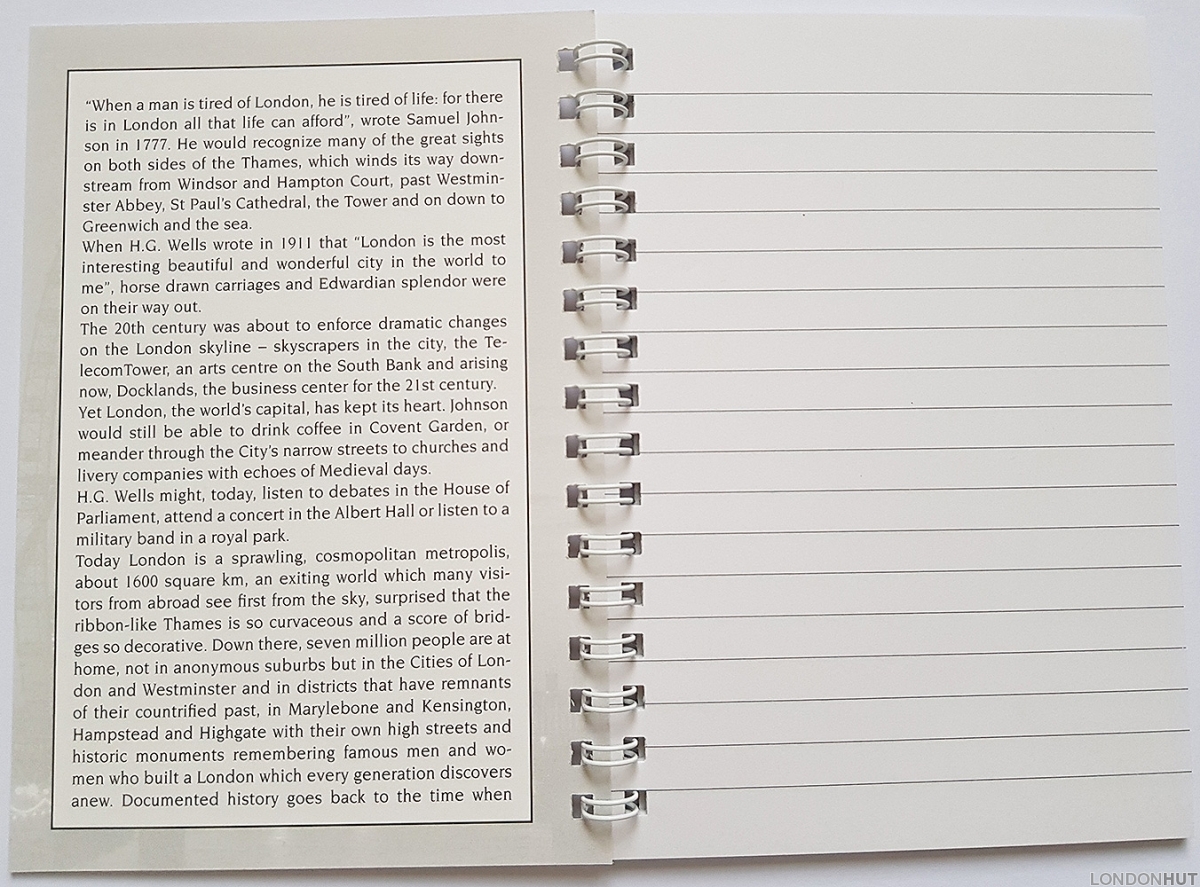 “When a man is tired of London, he is tired of life: for there
is in London all that life can afford”, wrote Samuel John-
son in 1777. He would recognize many of the great sights
on both sides of the Thames, which winds its way down-
stream from Windsor and Hampton Court, past Westmin-
ster Abbey, St Paul’s Cathedral, the Tower and on down to
Greenwich and the sea.
When H.G. Wells wrote in 1911 that “London is the most
interesting beautiful and wonderful city in the world to
me”, horse drawn carriages and Edwardian splendor were
on their way out.
The 20th century was about to enforce dramatic changes
on the London skyline – skyscrapers in the city, the Te-
lecomTower, an arts centre on the South Bank and arising
now, Docklands, the business center for the 21st century.
Yet London, the world’s capital, has kept its heart. Johnson
would still be able to drink coffee in Covent Garden, or
meander through the City’s narrow streets to churches and
livery companies with echoes of Medieval days.
H.G. Wells might, today, listen to debates in the House of
Parliament, attend a concert in the Albert Hall or listen to a
military band in a royal park.
Today London is a sprawling, cosmopolitan metropolis,
about 1600 square km, an exiting world which many visi-
tors from abroad see first from the sky, surprised that the
ribbon-like Thames is so curvaceous and a score of brid-
ges so decorative. Down there, seven million people are at
home, not in anonymous suburbs but in the Cities of Lon-
don and Westminster and in districts that have remnants
of their countrified past, in Marylebone and Kensington,
Hampstead and Highgate with their own high streets and
historic monuments remembering famous men and wo-
men who built a London which every generation discovers
anew. Documented history goes back to the time when
LONDONHUT